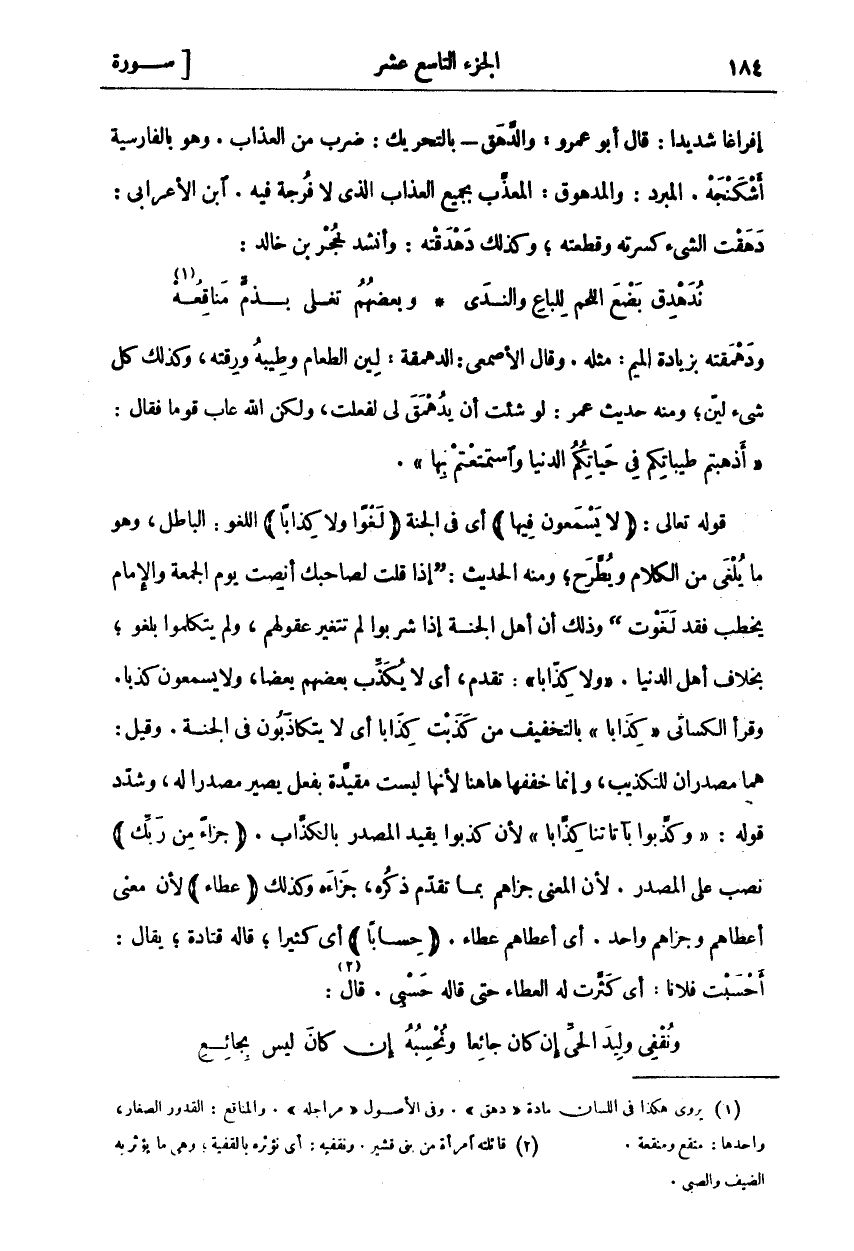 ١٨٤ الجزء التاسع عشر [ سـورة
إفراغا شديدا : قال أبو عمرو : والدَّهَق ـ بالتحريك : ضرب من العذاب . وهو بالفارسية
أَشْكَنْجَهْ . المبرد : والمدهوق : المعذَّب بجميع العذاب الذى لا فُرجة فيه . آبن الأعرابى :
دَهَقْت الشىء كسرته وقطعته ؛ وكذلك دَهْدَقْته : وأنشد لحُجْر بن خالد :
نُدَهْدِق بَضْعَ اللحم لِلباعِ والنـدَى * وبعضهُمُ تغلى بـذمٍّ مَناقِعُـهْ (١)
ودَهْمَقته بزيادة الميم : مثله . وقال الأصمعى : الدهمقة : لِين الطعام وطِيبهُ ورِقته ، وكذلك كل
شىء ليّن ؛ ومنه حديث عمر : لو شئت أن يُدَهْمَقَ لى لفعلت ، ولكن الله عاب قوما فقال :
« أَذهبتم طيباتِكم فِي حَياتِكُمُ الدنيا وٱستمتعْتمْ بِها » .
قوله تعالى : ﴿ لا يَسْمَعون فِيها ﴾ أى فى الجنة ﴿ لَغْوًا ولا كِذابًا ﴾ اللغو : الباطل ، وهو
ما يُلْغَى من الكلام ويُطَّرَح ؛ ومنه الحديث : ”إذا قلت لصاحبك أنصِت يوم الجمعة والإمام
يخطب فقد لَغَوْت “ وذلك أن أهل الجنـة إذا شربوا لم تتغير عقولهم ، ولم يتكلموا بلغو ؛
بخلاف أهل الدنيا . «ولا كِذّابا» : تقدم ، أى لا يُكَذِّب بعضهم بعضا ، ولا يسمعون كذبا .
وقرأ الكسائى « كِذَابا » بالتخفيف من كَذَبْت كِذَابا أى لا يتكاذَبُون فى الجنـة . وقيل :
هما مصدران للتكذيب ، وإنما خففها هاهنا لأنها ليست مقيَّدة بفعل يصير مصدرا له ، وشدّد
قوله : « وكذّبوا بآياتنا كِذّابا » لأن كذبوا يقيد المصدر بالكذَّاب . ﴿ جزاءً مِن رَبِّك ﴾
نصب على المصدر . لأن المعنى جزاهم بمـا تقدّم ذكره ، جَزَاءَه وكذلك ﴿ عطاء ﴾ لأن معنى
أعطاهم وجزاهم واحد . أى أعطاهم عطاء . ﴿ حِسـابًا ﴾ أى كثيرا ؛ قاله قتادة ؛ يقال :
أَحْسَبْت فلانا : أى كَثَّرت له العطاء حتى قاله حَسْبِى . قال (٢) :
ونُقْفِى ولِيدَ الحىِّ إن كان جائعا ونُحْسِبُهُ إن كانَ ليس بِجائِـعِ
(١) يروى هكذا فى اللسان مادة « دهق » . وفى الأصـول « مراجله » . والمناقع : القدور الصغار ،
واحدها : منقع ومنقعة . (٢) قائلته آمرأة من بنى قشير . ونقفيه : أى نؤثره بالقفية ؛ وهى ما يؤثر به
الضيف والصبى .